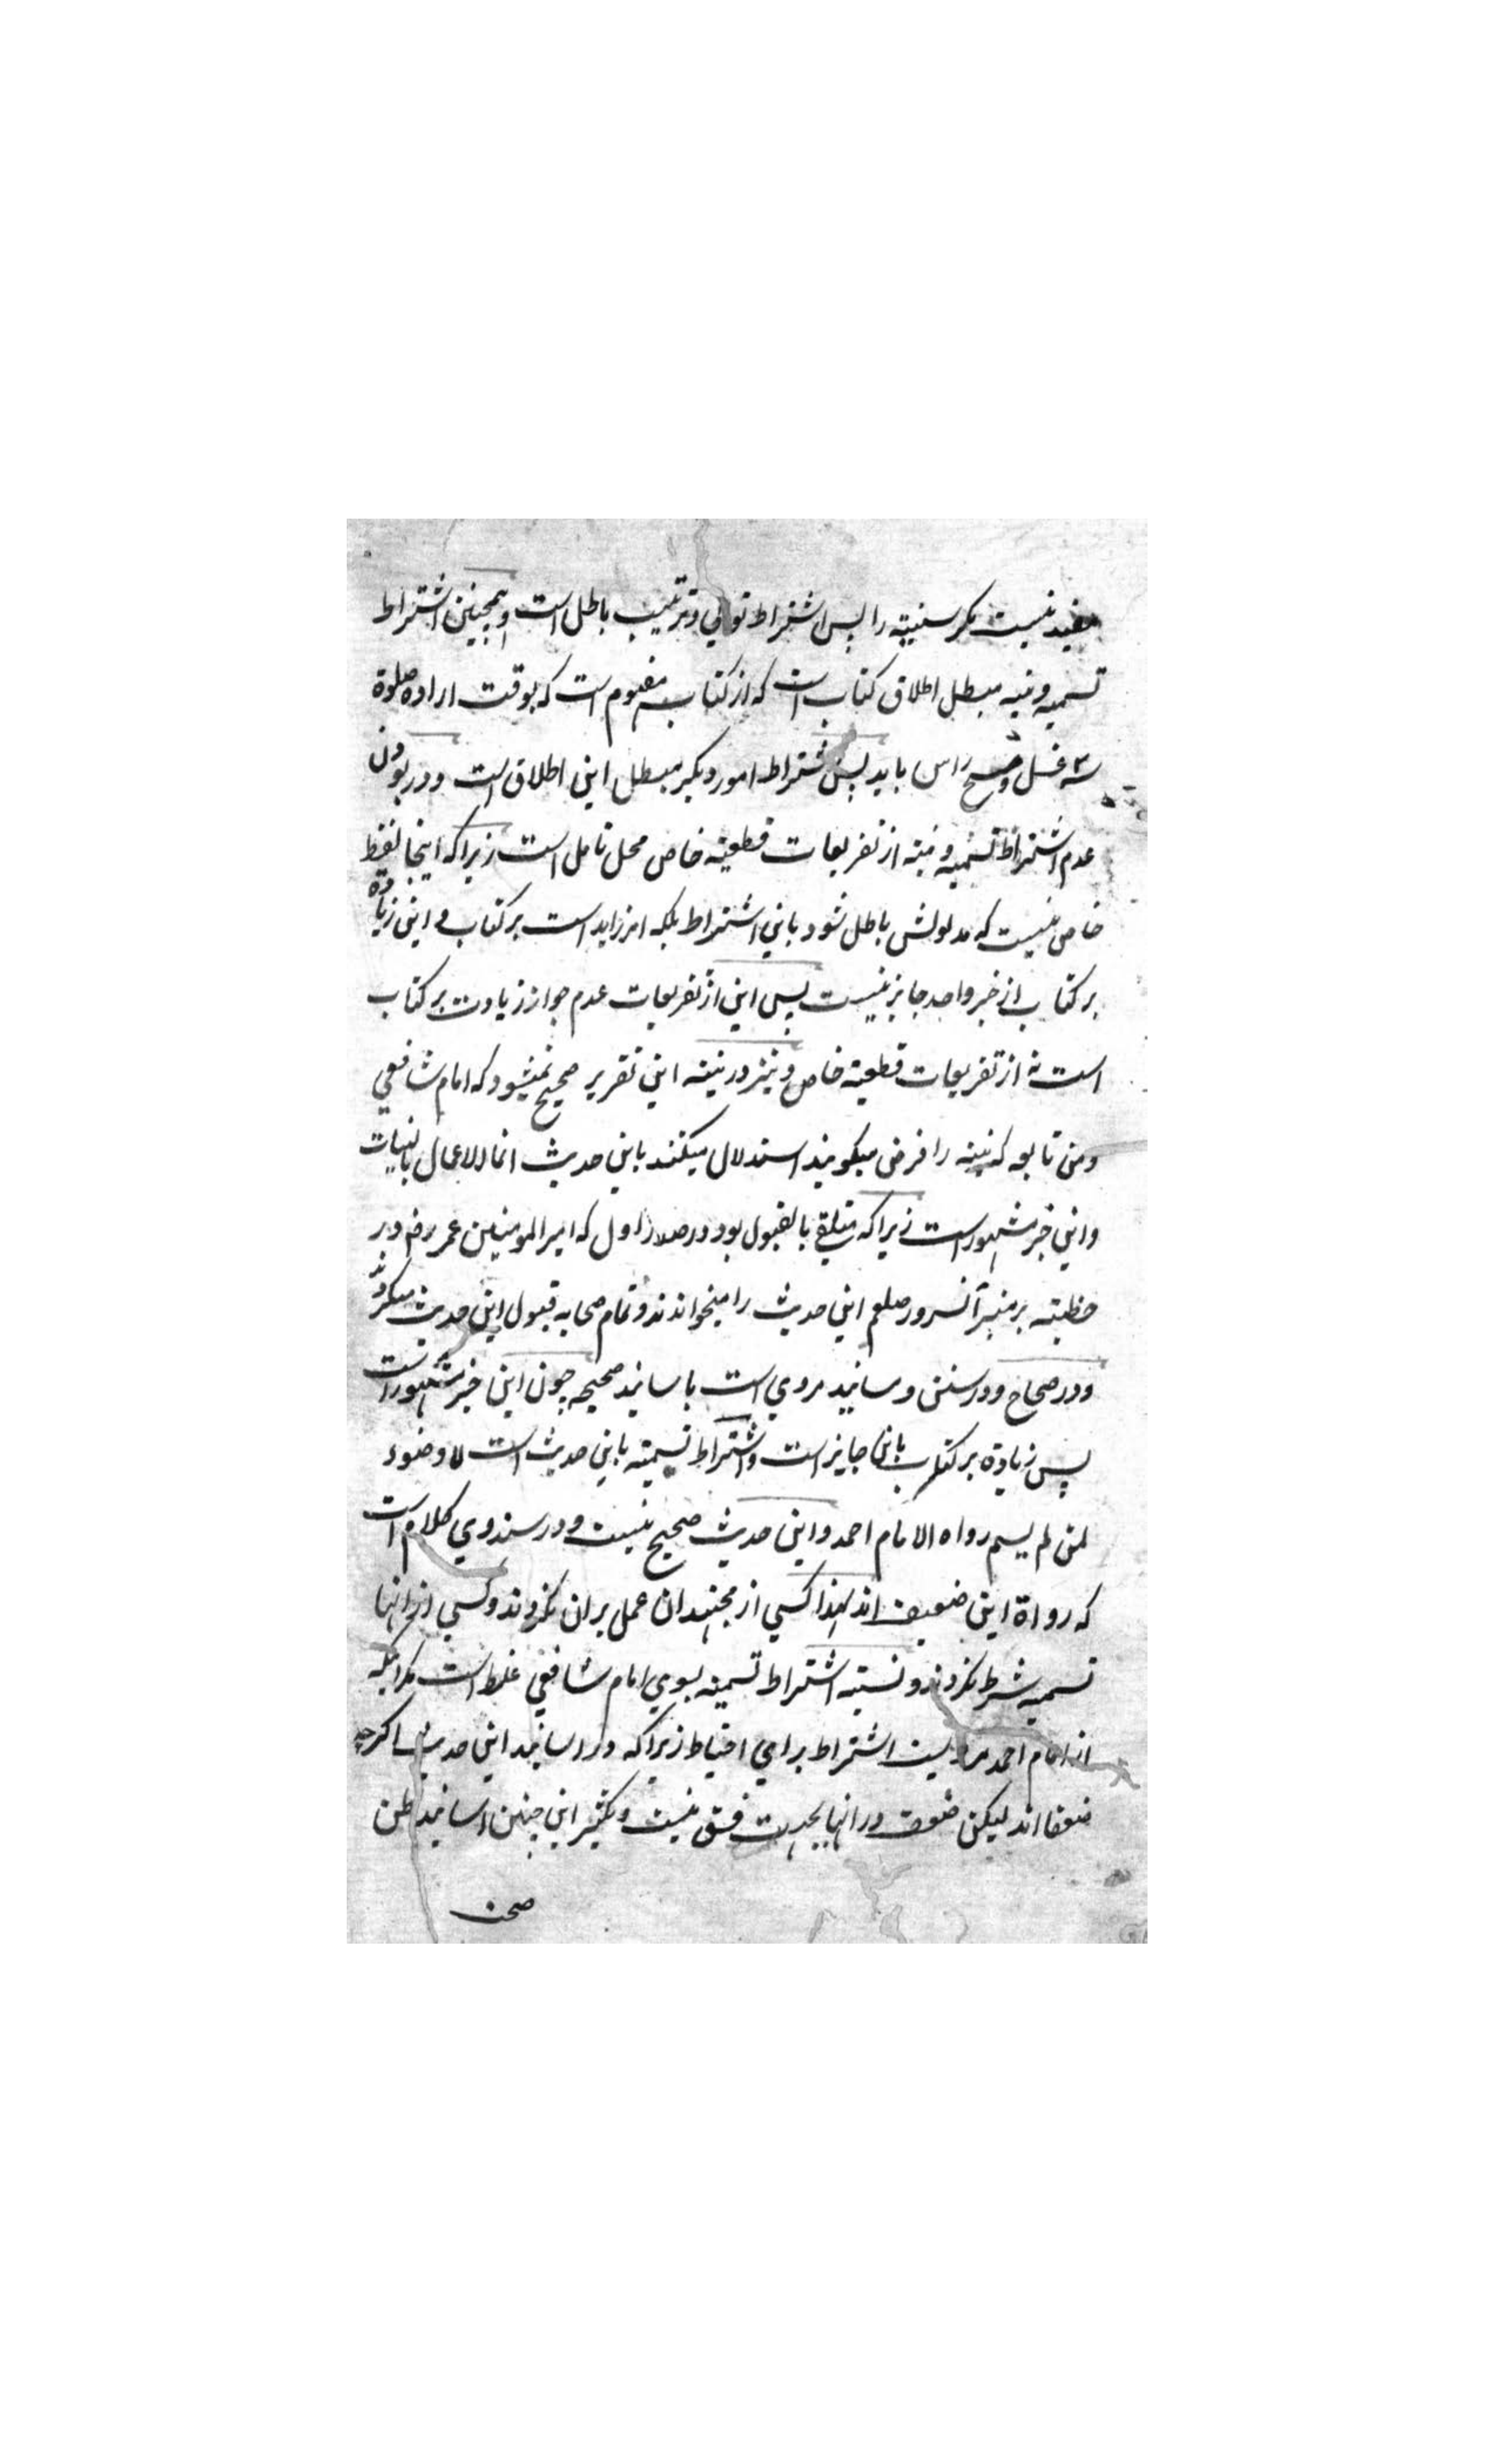 مفید نیست مکر سنیته را پس اشتراط توالي و ترتیب باطل است و همچنین اشتراط
تسمیه و نیه مبطل اطلاق کتاب است که از کتاب مفهوم است که بوقت اراده صلوة
سه غسل و مسح راس باید پس اشتراط امور دیکر مبطل این اطلاق است و در بودن
عدم اشتراط تسمیه و نیته از تفریعات قطعیته خاص محل تامل است زیرا که اینجا لفظ
خاص نیست که مدلولش باطل شود باین اشتراط بلکه امر زاید است بر کتاب و این زیادة
بر کتاب از خبر واحد جایز نیست پس این از تفریعات عدم جواز زیادت بر کتاب
است نه از تفریعات قطعیته خاص و نیز در نیته این تقریر صحیح نمیشود که امام شافعي
و من تابعه که نیته را فرض میکویند استدلال میکنند باین حدیث انما الاعمال بالنیات
و این خبر مشهور است زیرا که متلقي بالقبول بود در صدر اول که امیر المومنین عمر رض در بر
خطبته بر منبر آنسرور صلعم این حدیث را میخواندند و تمام صحابه قبول این حدیث میکردند
و در صحاح و در سنن و مسانید مروي است باسانید صحیحه چون این خبر مشهور است
پس زیادة بر کتاب باین جایز است و اشتراط تسمیته باین حدیث است لا وضوء
لمن لم یسم رواه الامام احمد و این حدیث صحیح نیست و در سند وي کلام است
که رواة این ضعیف اند لهذا کسي از مجتهدان عمل بران نکردند و کسي از انها
تسمیه شرط نکردند و نسبته اشتراط تسمیه بسوي امام شافعي غلط است مکر اینکه
از امام احمد مرویست اشتراط براي احتیاط زیرا که در اسانید این حدیث اکرچه
ضعفا اند لیکن ضعف در انها بجهت فسق نیست و تکثیر این چنین اسانید ظن
صحت